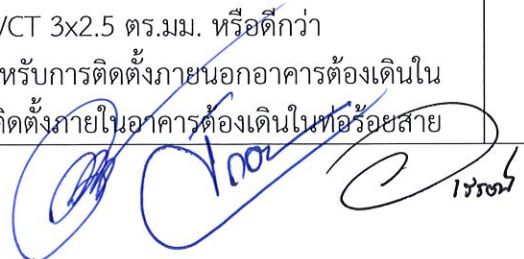 VCT 3x2.5 ตร.มม. หรือดีกว่า
หรับการติดตั้งภายนอกอาคารต้องเดินใน
ติดตั้งภายในอาคารต้องเดินในท่อร้อยสาย